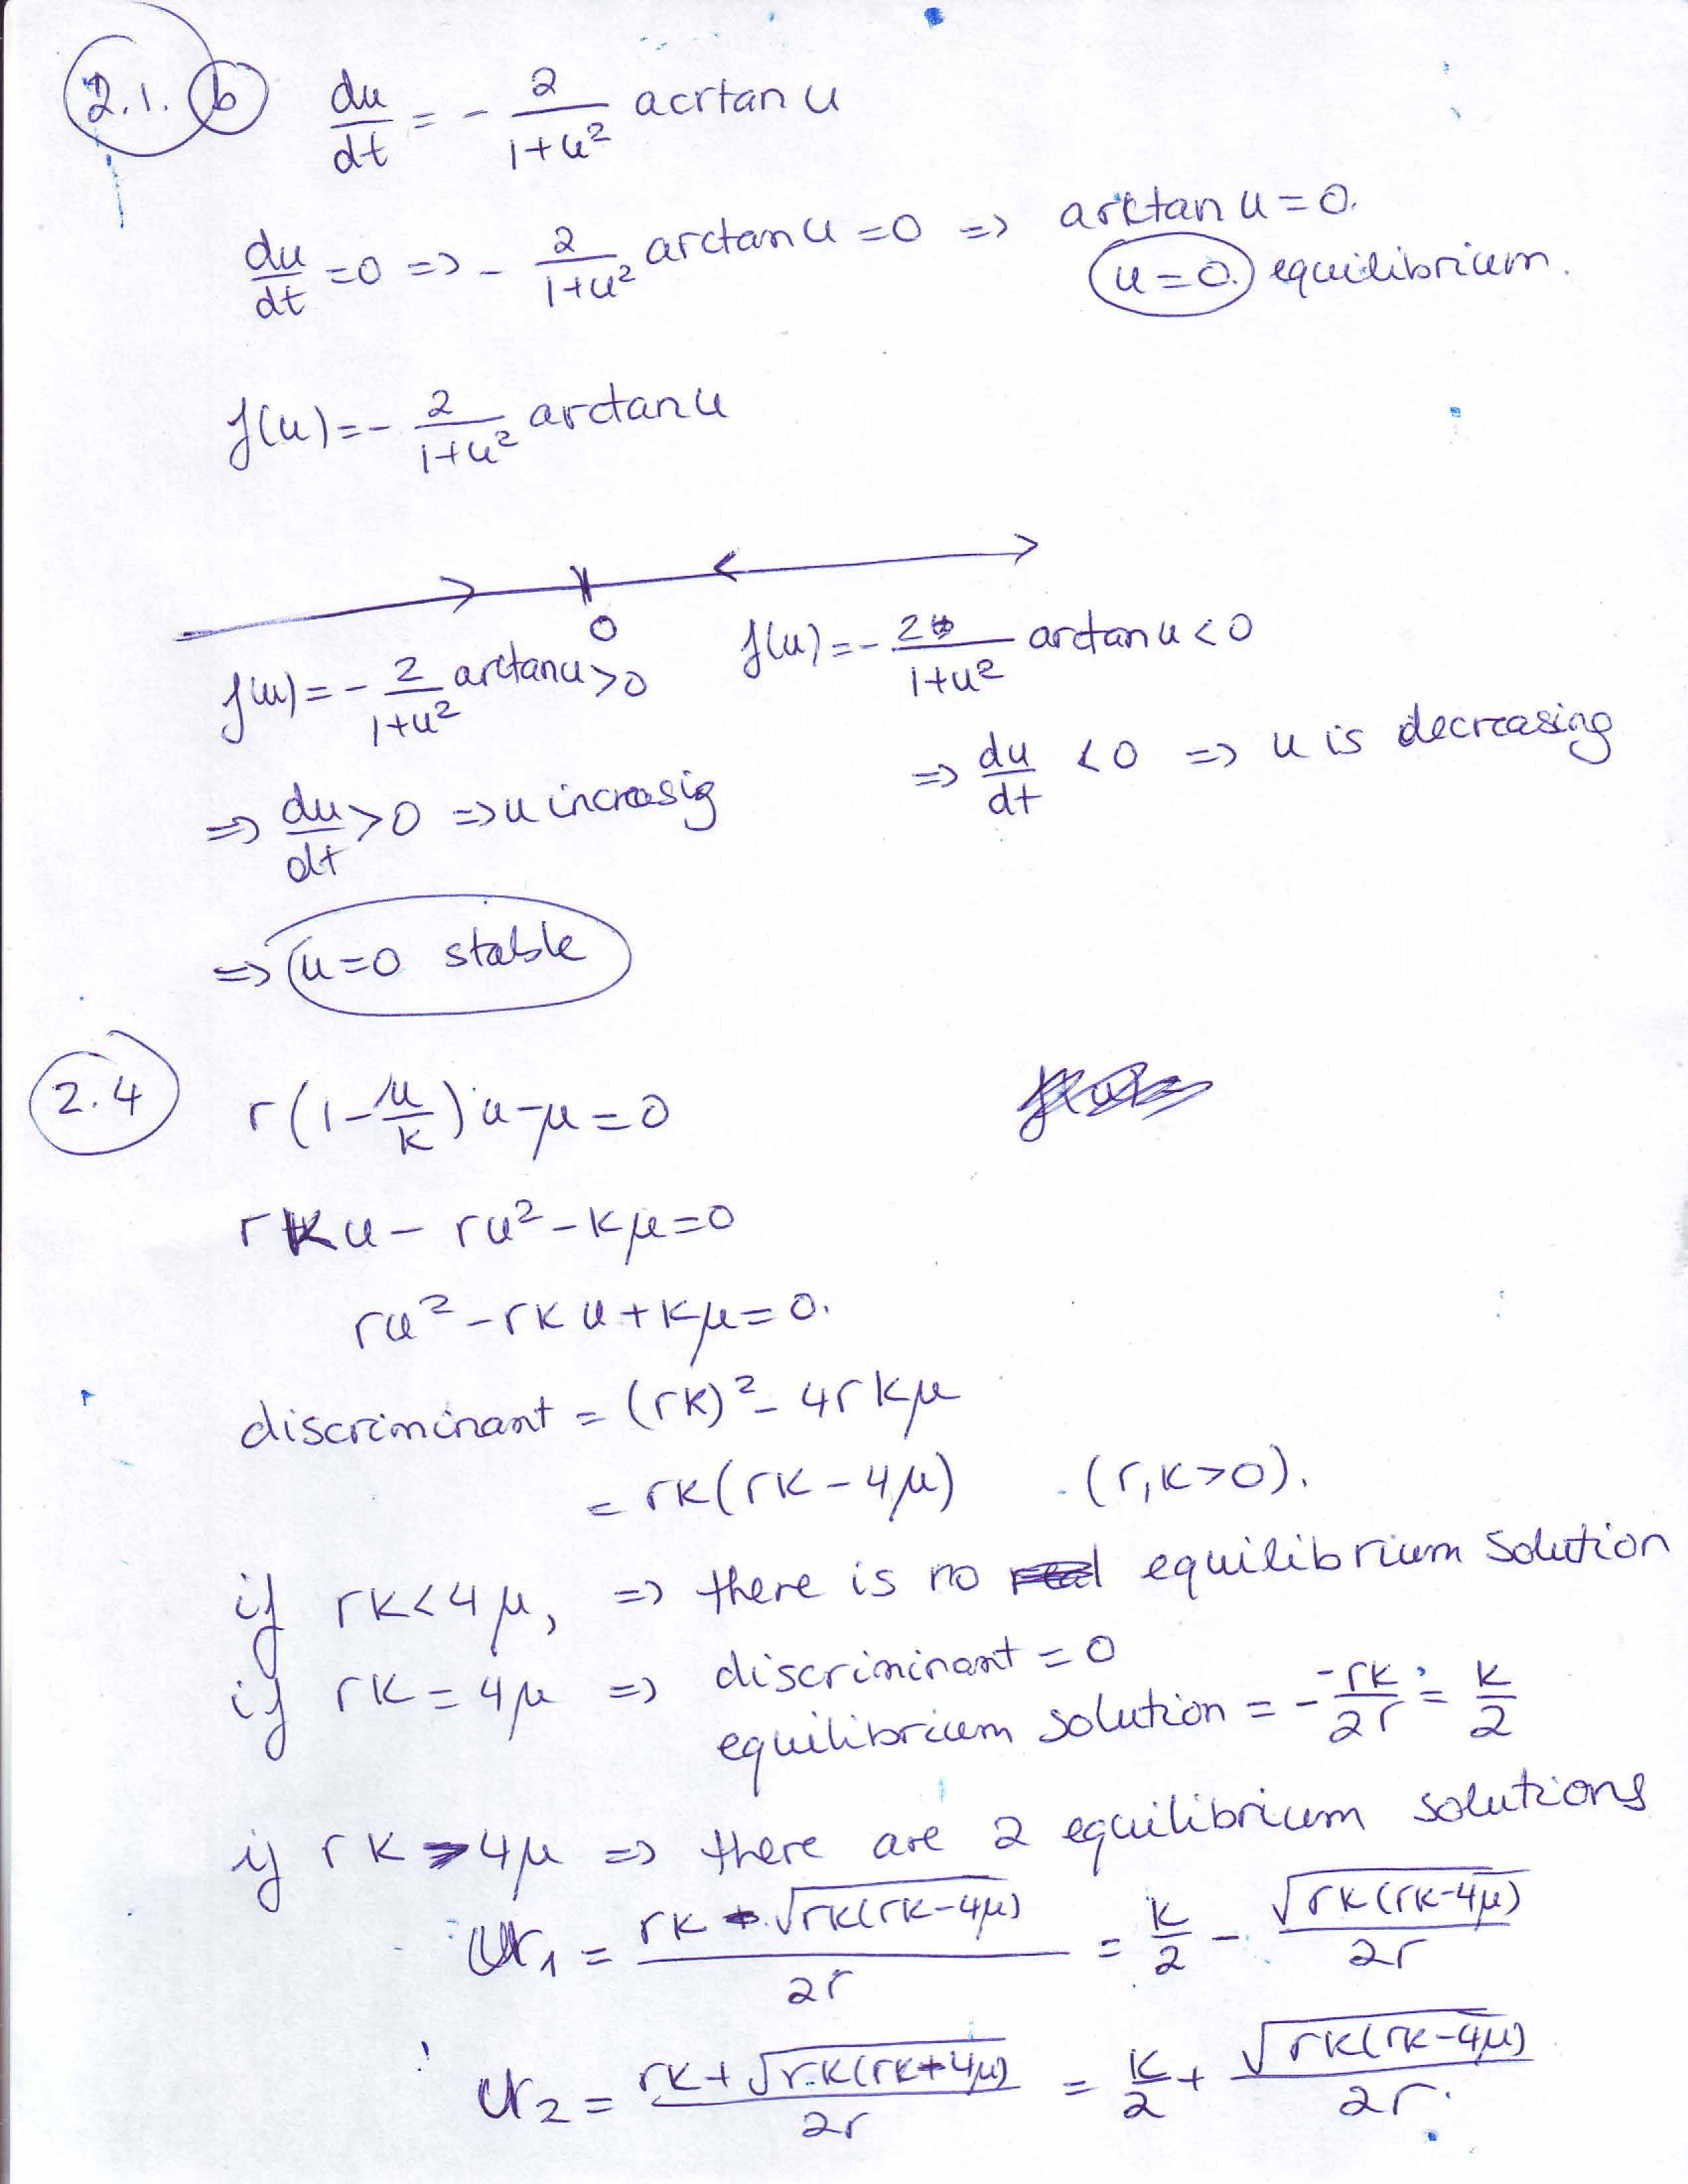 2.1. b du/dt = - 2/(1+u²) acrtan u
du/dt = 0 => - 2/(1+u²) arctan u = 0 => arctan u = 0.
u = 0. equilibrium.
f(u) = - 2/(1+u²) arctan u
0
f(u) = - 2/(1+u²) arctan u > 0 f(u) = - 2/(1+u²) arctan u < 0
=> du/dt > 0 => u increasig => du/dt < 0 => u is decreasing
=> u=0 stable
2.4 r(1 - u/K) u - μ = 0
rKu - ru² - Kμ = 0
ru² - rKu + Kμ = 0.
discriminant = (rK)² - 4rKμ
= rK(rK - 4μ) (r,K>0).
if rK < 4μ, => there is no equilibrium solution
if rK = 4μ => discriminant = 0
equilibrium solution = - -rK/2r = K/2
if rK > 4μ => there are 2 equilibrium solutions
u₁ = (rK - √(rK(rK-4μ)))/2r = K/2 - √(rK(rK-4μ))/2r
u₂ = (rK + √(rK(rK-4μ)))/2r = K/2 + √(rK(rK-4μ))/2r.